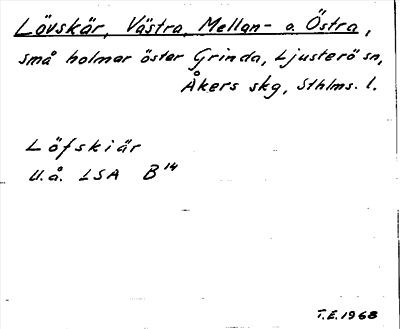 Lövskär, Västra, Mellan- o. Östra,
små holmar öster Grinda, Ljusterö sn,
Åkers skg, Sthlms. l.
Löfskiär
U.å. LSA B14
T.E. 1968